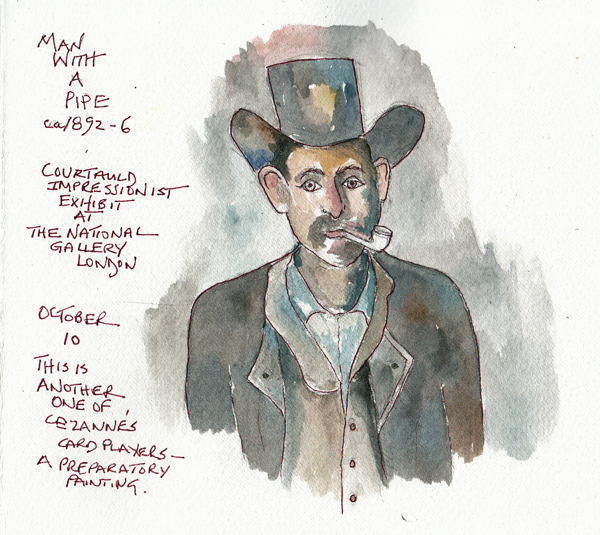 MAN
WITH
A
PIPE
ca 1892-6
COURTAULD
IMPRESSIONIST
EXHIBIT
AT
THE NATIONAL
GALLERY
LONDON
OCTOBER
10
THIS IS
ANOTHER
ONE OF
CEZANNE'S
CARD PLAYERS-
A PREPARATORY
PAINTING.